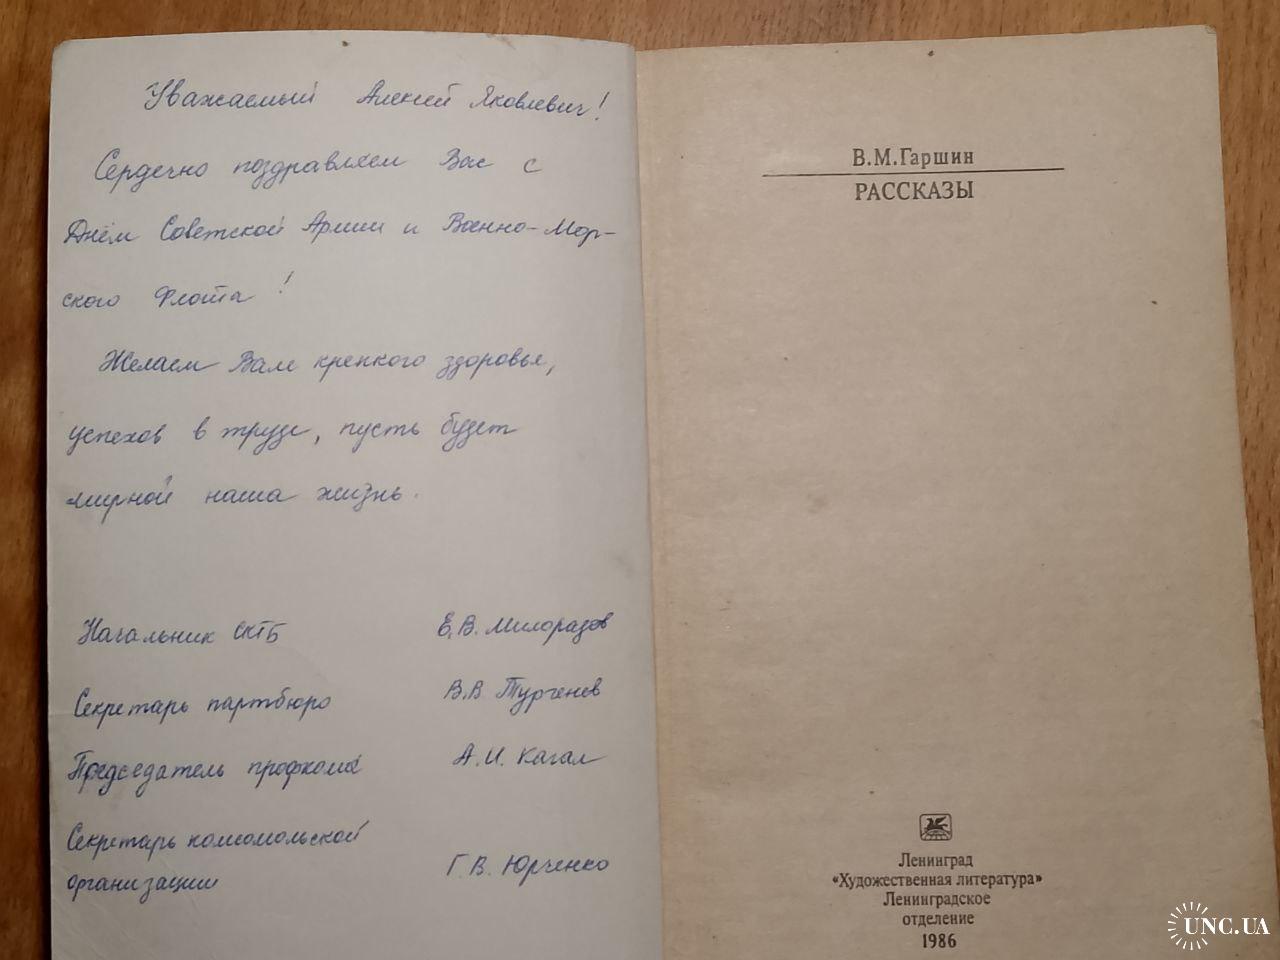 Уважаемый Алексей Яковлевич!
Сердечно поздравляем Вас с
Днём Советской Армии и Военно-Мор-
ского Флота!
Желаем Вам крепкого здоровья,
успехов в труде, пусть будет
мирной наша жизнь.
Начальник СКТБ Е.В. Милорадов
Секретарь партбюро В.В Тургенев
Председатель профкома А.И. Кагал
Секретарь комсомольской
организации Г.В. Юрченко
В.М.Гаршин
РАССКАЗЫ
Ленинград
«Художественная литература»
Ленинградское
отделение
1986
UNC.UA